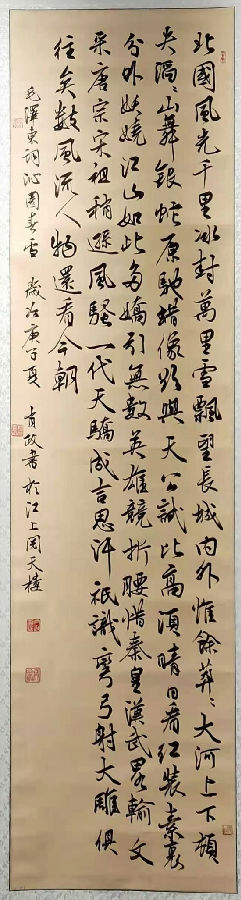 北國風光千里冰封萬里雪飄望長城內外惟餘莽〻大河上下頓
失滔〻山舞銀蛇原馳蜡像欲與天公試比高須晴日看紅裝素裹
分外妖嬈江山如此多嬌引無數英雄競折腰惜秦皇漢武畧輸文
采唐宗宋祖稍遜風騷一代天驕成吉思汗祇識彎弓射大雕俱
往矣數風流人物還看今朝
毛澤東詞沁園春雪 歲次庚子夏 書於江上天樓